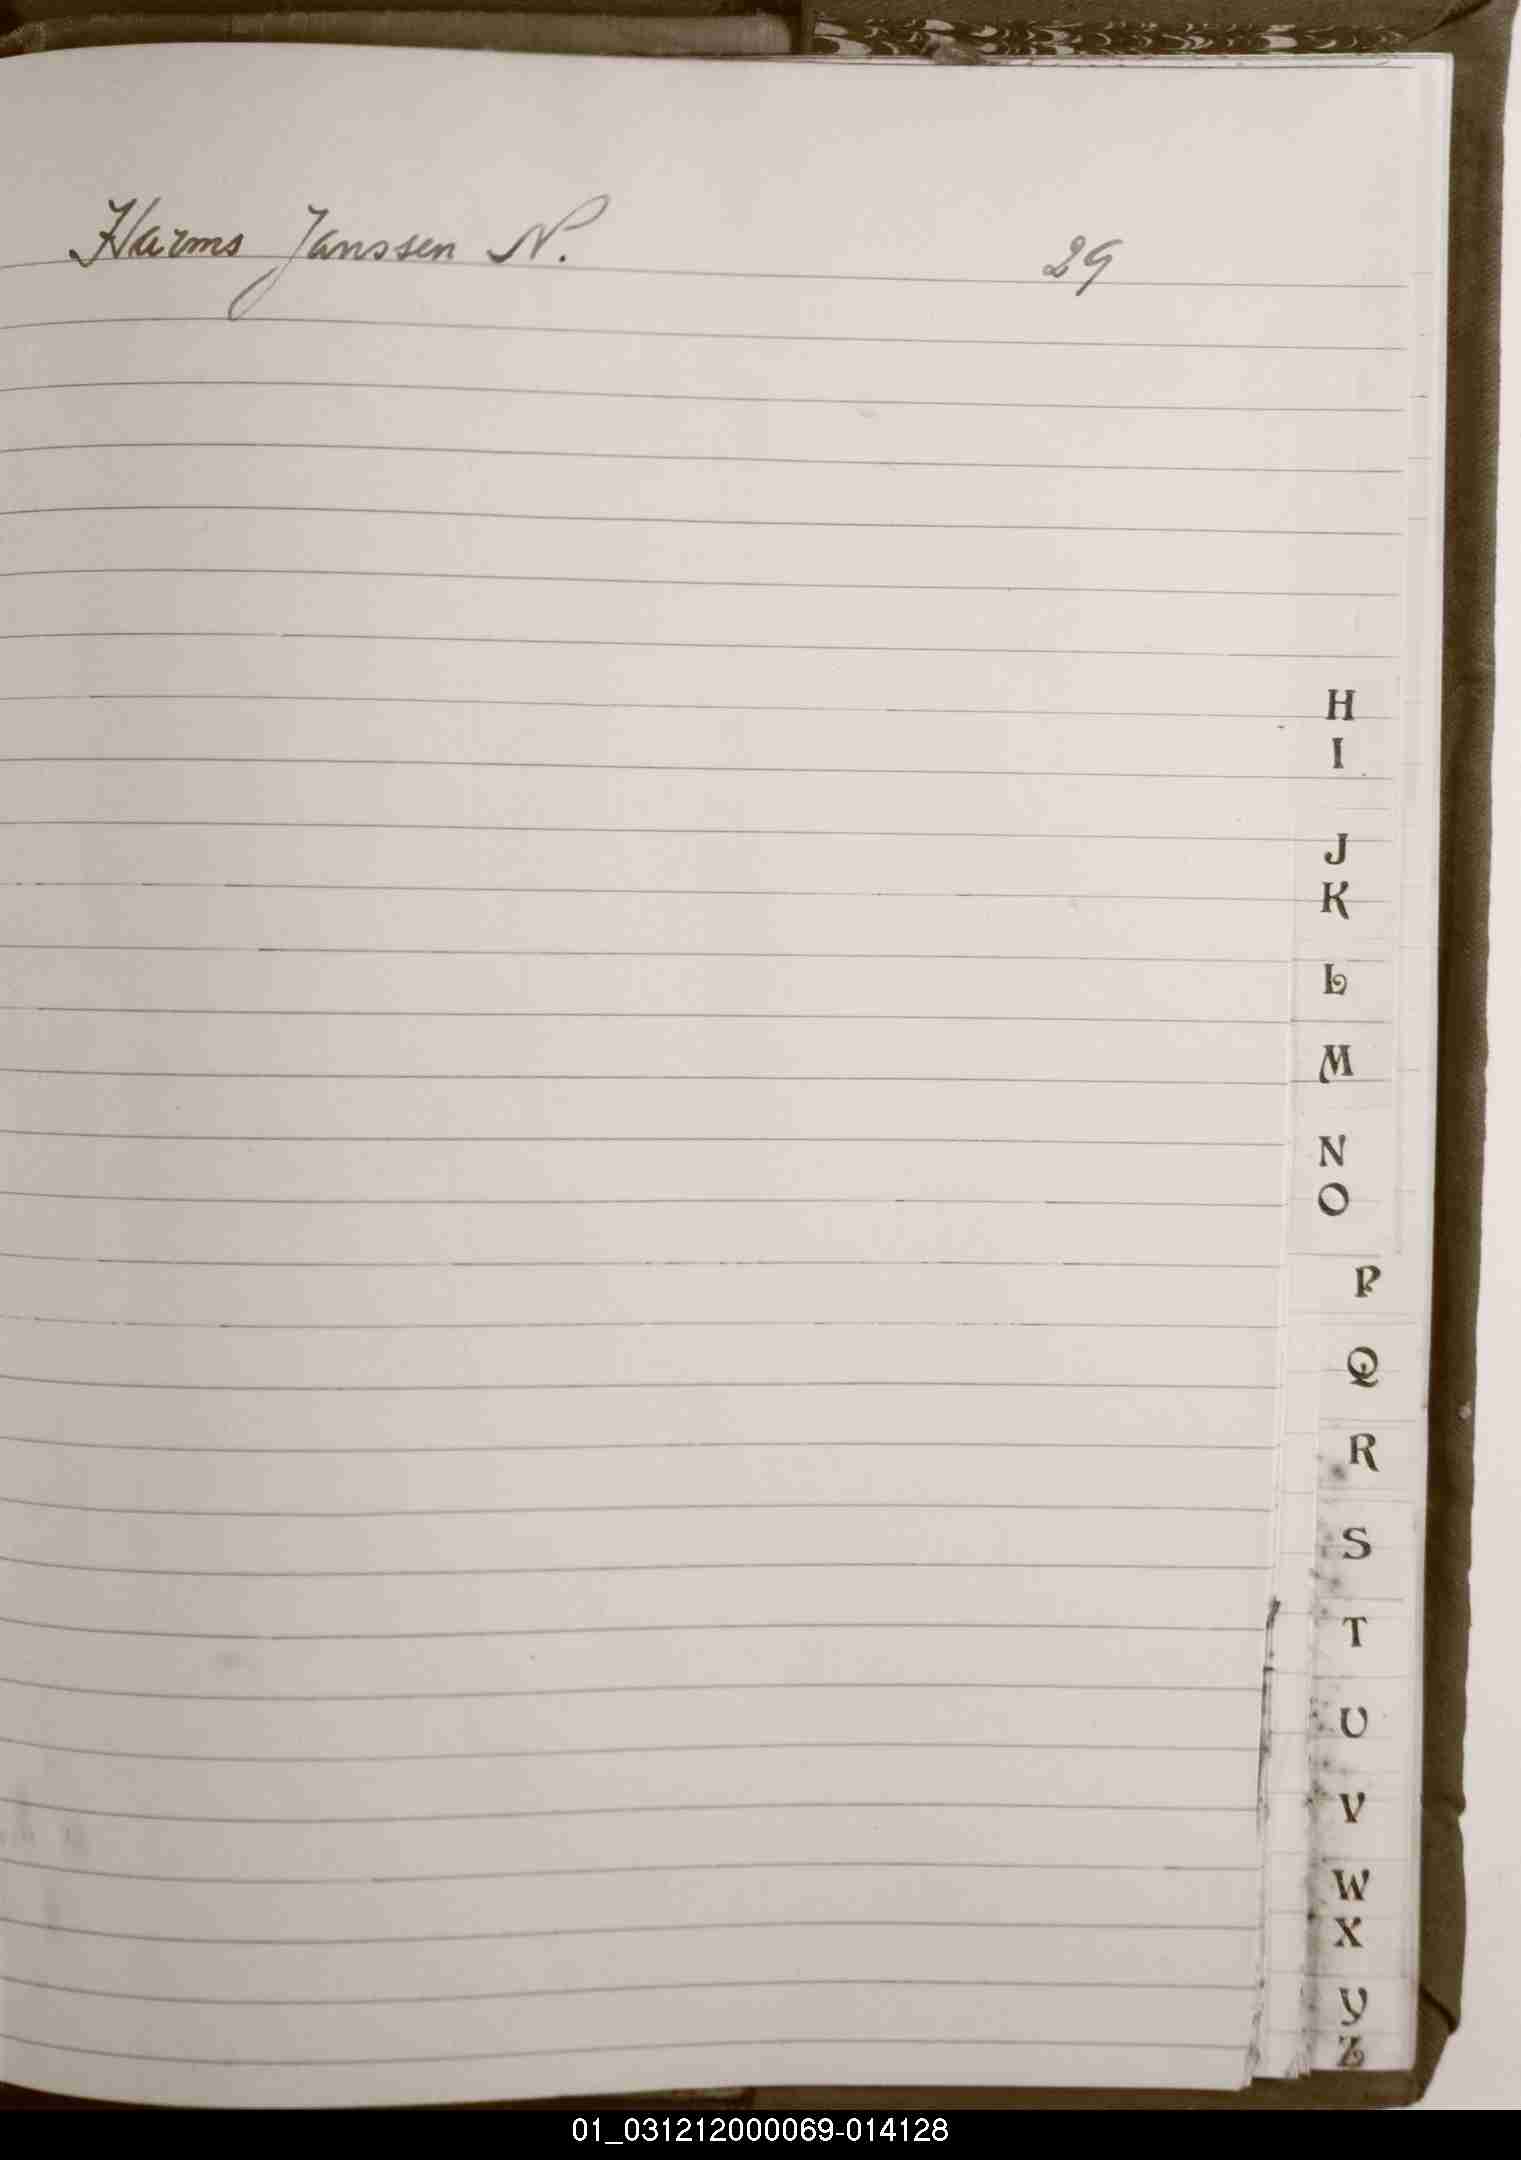 Harms Janssen N. 29
H
I
J
K
L
M
N
O
P
Q
R
S
T
U
V
W
X
Y
Z
01_031212000069-014128